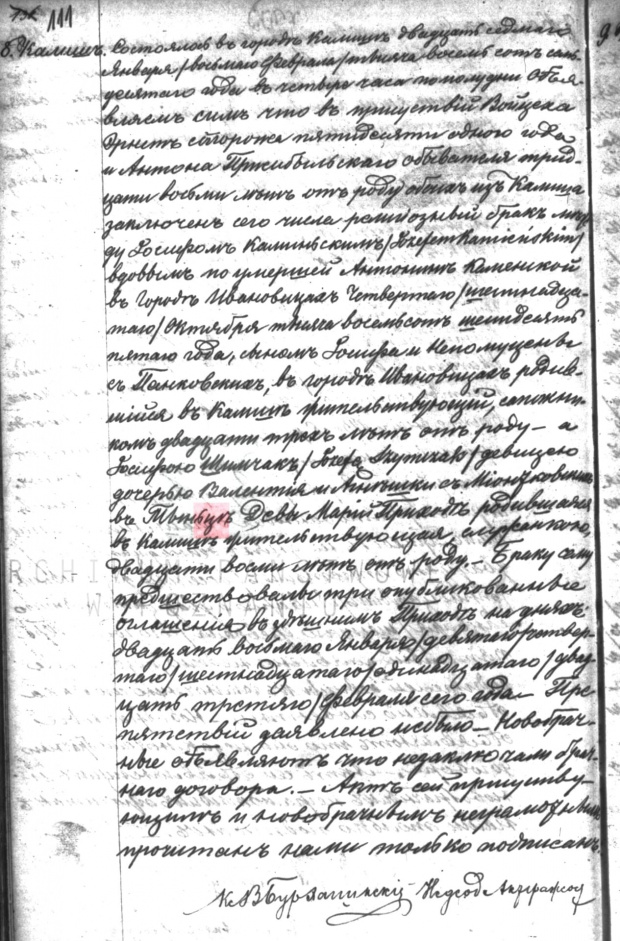 111
б. Калишъ. Состоялось въ городѣ Калишѣ двадцать седьмаго
Января /восьмаго Февраля/ тысяча восемь сотъ семь-
десятаго года въ четыре часа по полудни. Объя-
вляемъ симъ что въ присутствіи Войцеха
сторожа пятидесяти одного года
и Антона Пржибыльскаго обывателя трид-
цати восьми лѣтъ отъ роду обоихъ изъ Калиша
заключенъ сего числа религіозный бракъ меж-
ду Іосифомъ Каминьскимъ /Józefem Kamieńskim/
вдовымъ по умершей Антонинѣ Каменской
въ городѣ Ивановицахъ четвертаго /шестнадца-
таго/ Октября тысяча восемьсотъ шестьдесятъ
пятаго года, сыномъ Іосифа и Непомуцены
съ Панковскихъ, въ городѣ Ивановицахъ родив-
шійся въ Калишѣ жительствующій, сапожни-
комъ двадцати трехъ лѣтъ отъ роду – а
Іосифою Шимчакъ /Józefą Szymczak/ девицею
дочерью Валентія и Агнѣшки съ
въ Дѣвы Маріи Приходѣ родившаяся
въ Калишѣ жительствующая, служанкою,
двадцати восми лѣтъ отъ роду. – Браку сему
предшествовали три опубликованные
оглашенія въ здѣшнимъ Приходѣ на дняхъ:
двадцать восьмаго Января /девятаго/ четвер-
таго /шестнадцатаго/ одинадцатаго /двад-
цать третяго/ Февраля сего года. Пре-
пятствій заявлено небыло – Новобрач-
ные объявляютъ что незаключали брач-
наго договора. – Актъ сей присутству-
ющимъ и новобрачнымъ неграмотнымъ
прочитанъ нами только подписанъ.